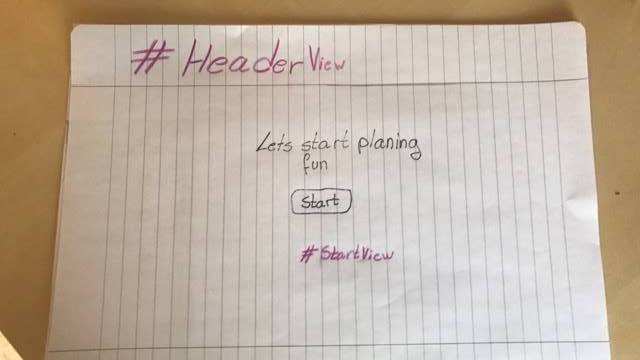 # Header View
Lets start planing
fun
Start
#StartView